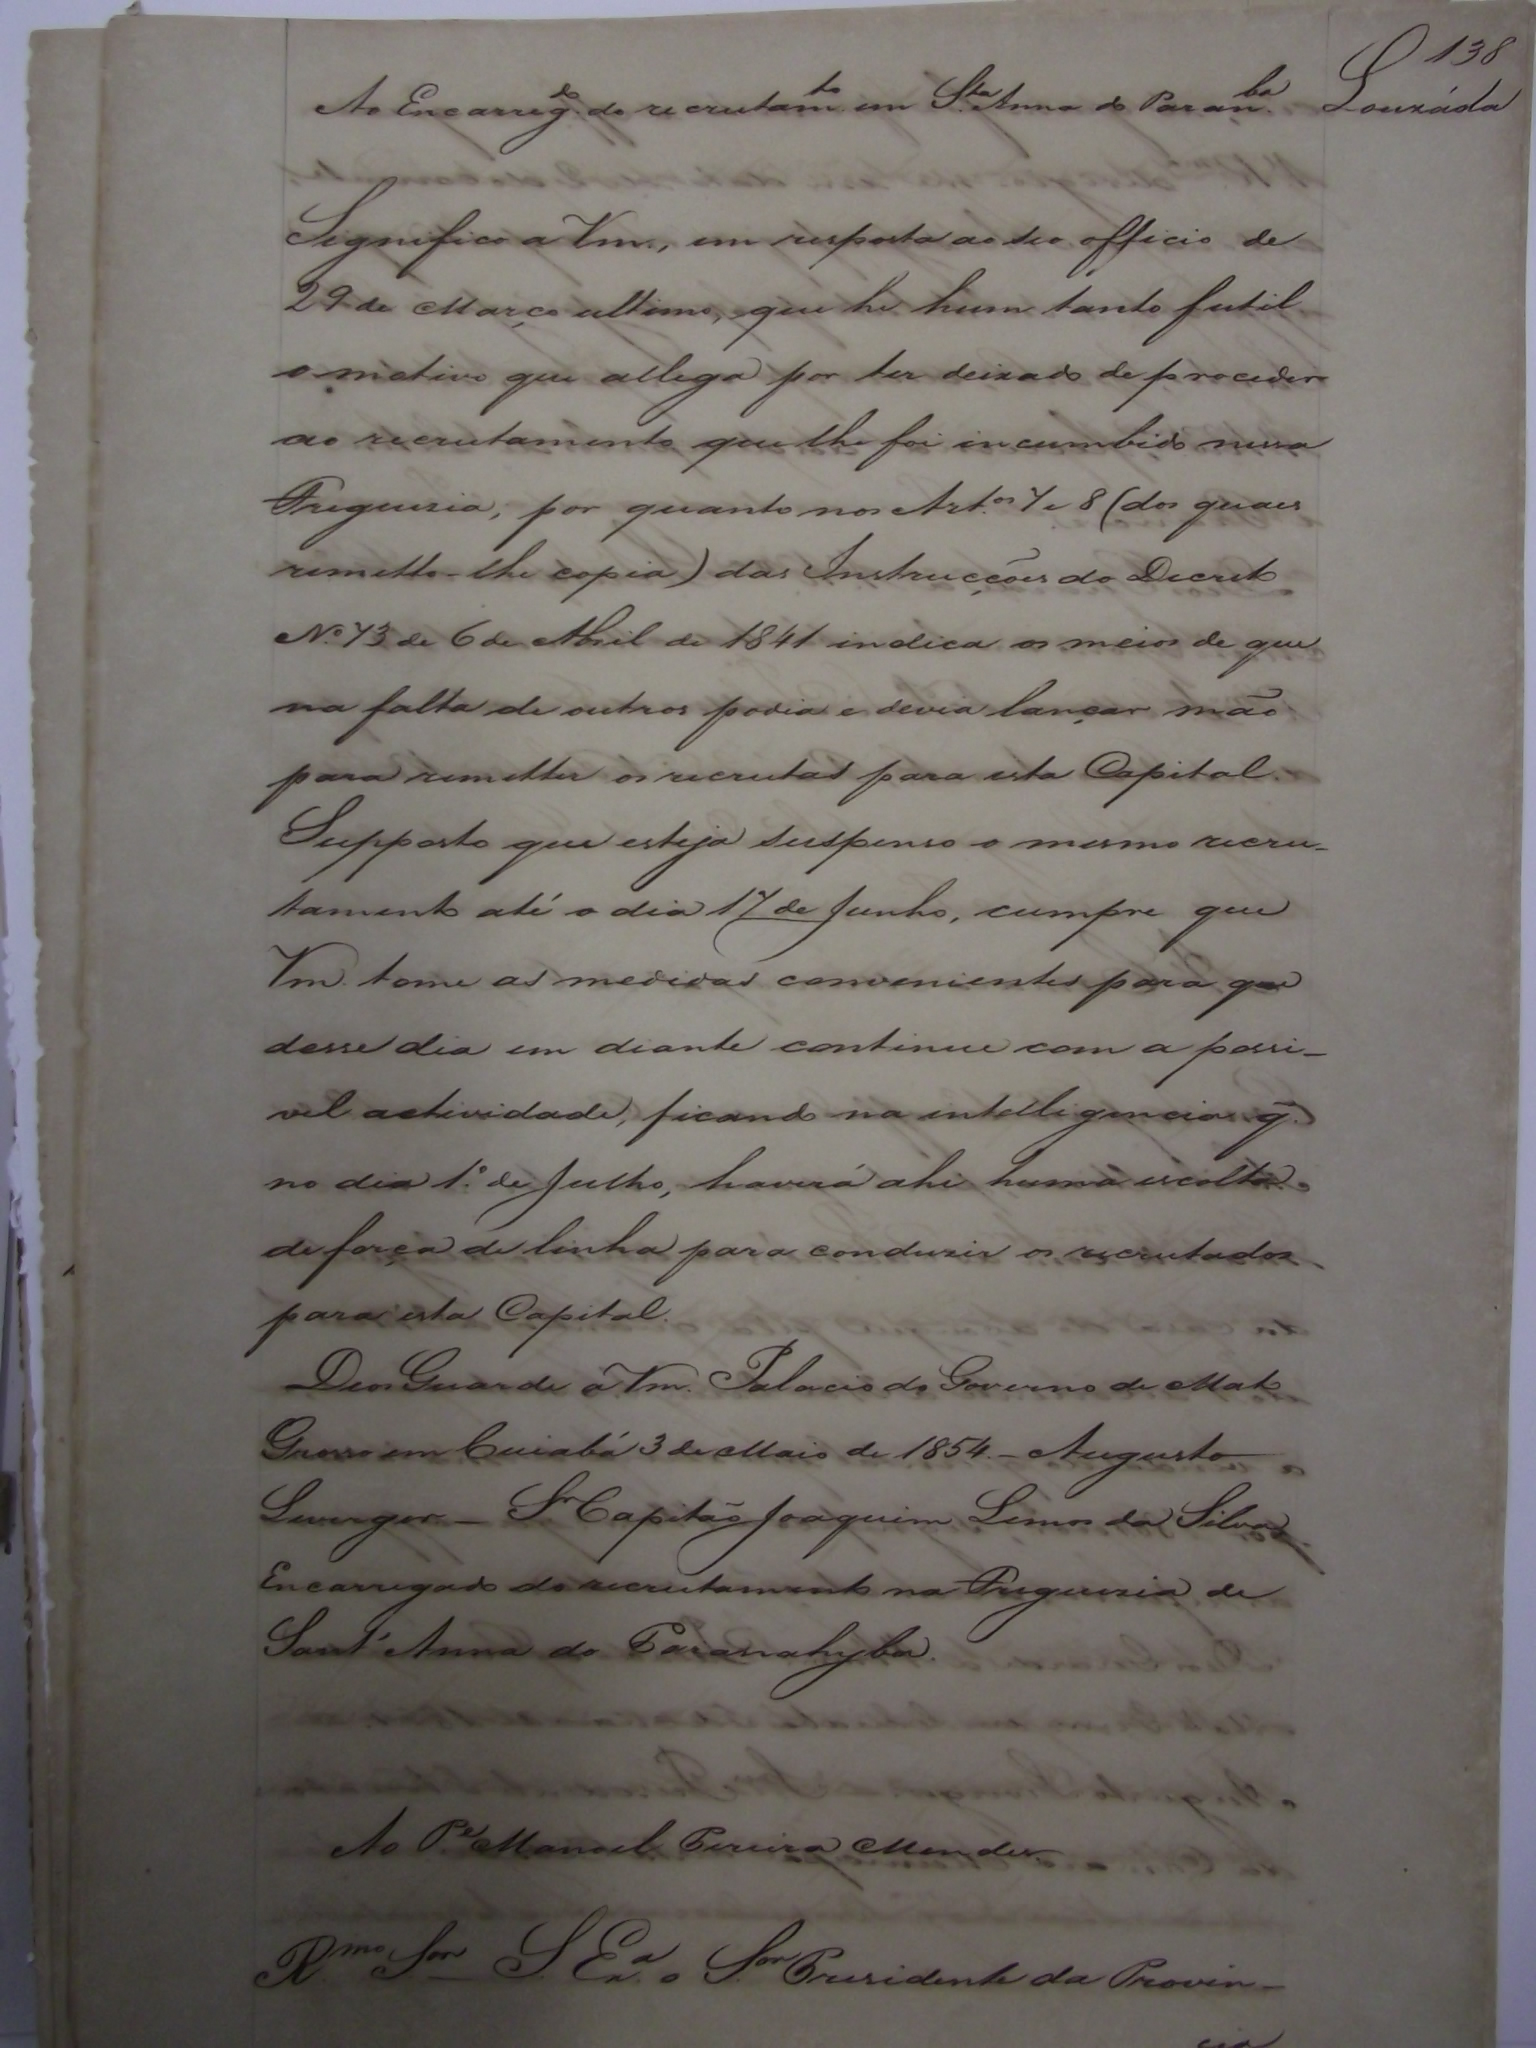 138
Louzáda
Ao Encarreg.do do recrutam.to em S.ta Anna do Paran.ba
Significo a Vm., em resposta ao seo officio de
29 de Março ultimo, que he hum tanto futil
o motivo que allega por ter deixado de proceder
ao recrutamento que lhe foi incumbido nessa
Freguezia, por quanto nos Art.os 7 e 8 (dos quaes
remetto-lhe copia) das Instrucções do Decreto
N.º 73 de 6 de Abril de 1841 indica os meios de que
na falta de outros podia e devia lançar mão
para remetter os recrutas para esta Capital.
Supposto que esteja suspenso o mesmo recru-
tamento até o dia 17 de Junho, cumpre que
Vm. tome as medidas convenientes para que
desse dia em diante continue com a possi-
vel actividade, ficando na intelligencia q̃.
no dia 1.º de Julho, haverá ahi huma escolta
de força de linha para conduzir os recrutados
para esta Capital.
Deos Guarde a Vm. Palacio do Governo de Mato
Grosso em Cuiabá 3 de Maio de 1854. - Augusto
Leverger - S.r Capitão Joaquim Lemos da Silva,
Encarregado do recrutamento na Freguezia de
Sant' Anna do Paranahyba.
Ao P.e Manoel Pereira Mendes
R.mo Snr - S. Ex.a o Snr Presidente da Provin-
cia